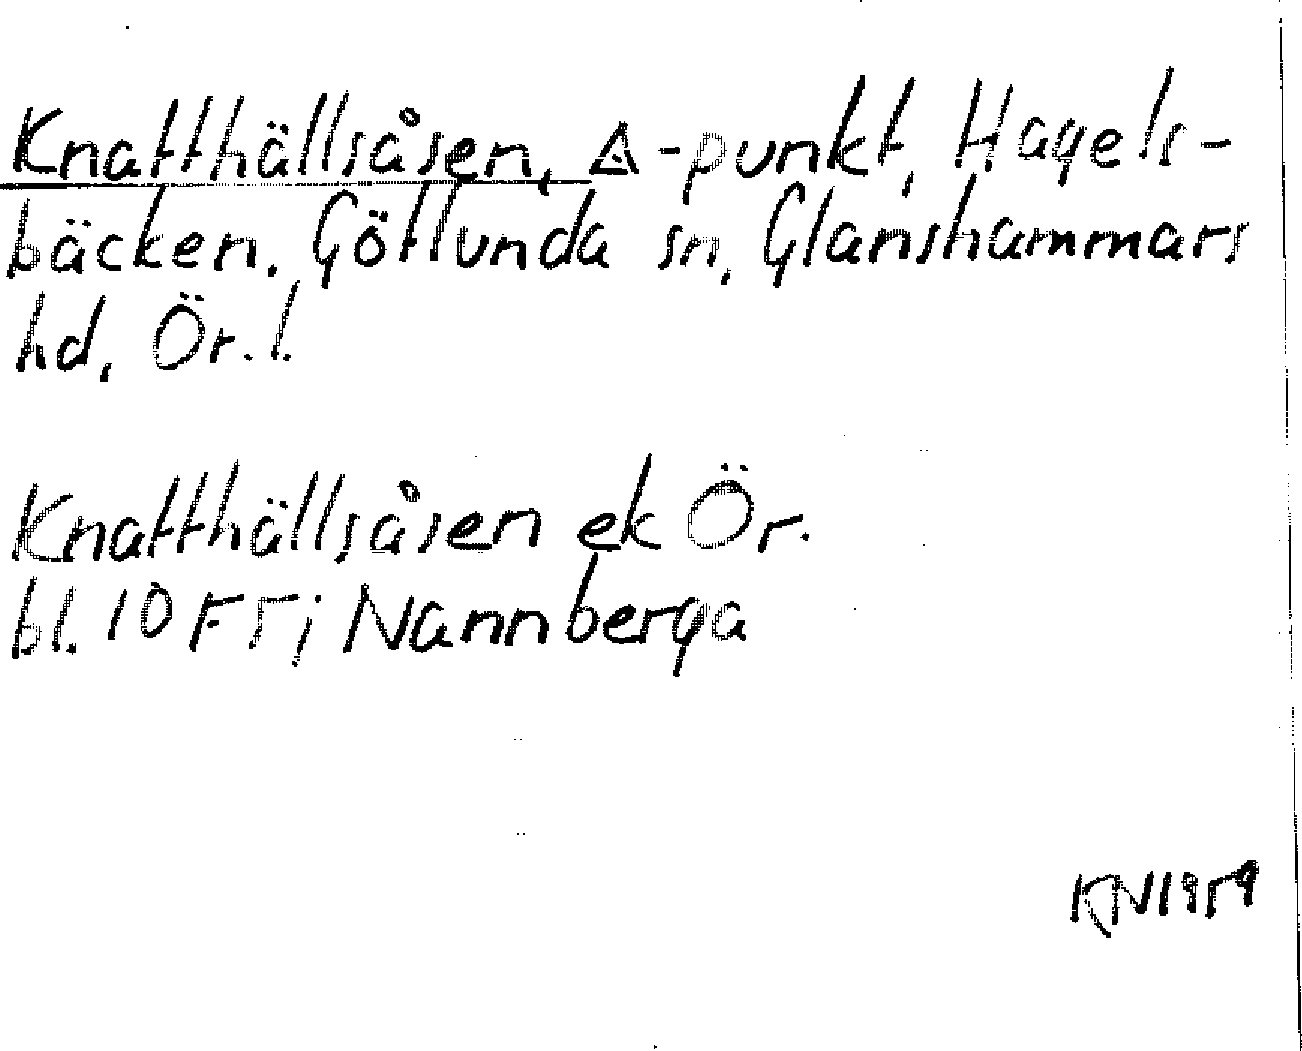 Knatthällsåsen, ◬-punkt, Hagels-
bäcken. Götlunda sn, Glanshammars
hd, Ör. l.
Knatthällsåsen ek Ör.
bl. 10F5i Nannberga
KN1959